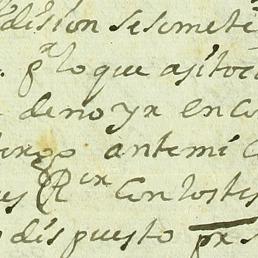 dision sesomete
pa lo que asitoc
de no yr en co
antemi
es Rix con los tes
dispuesto pr s